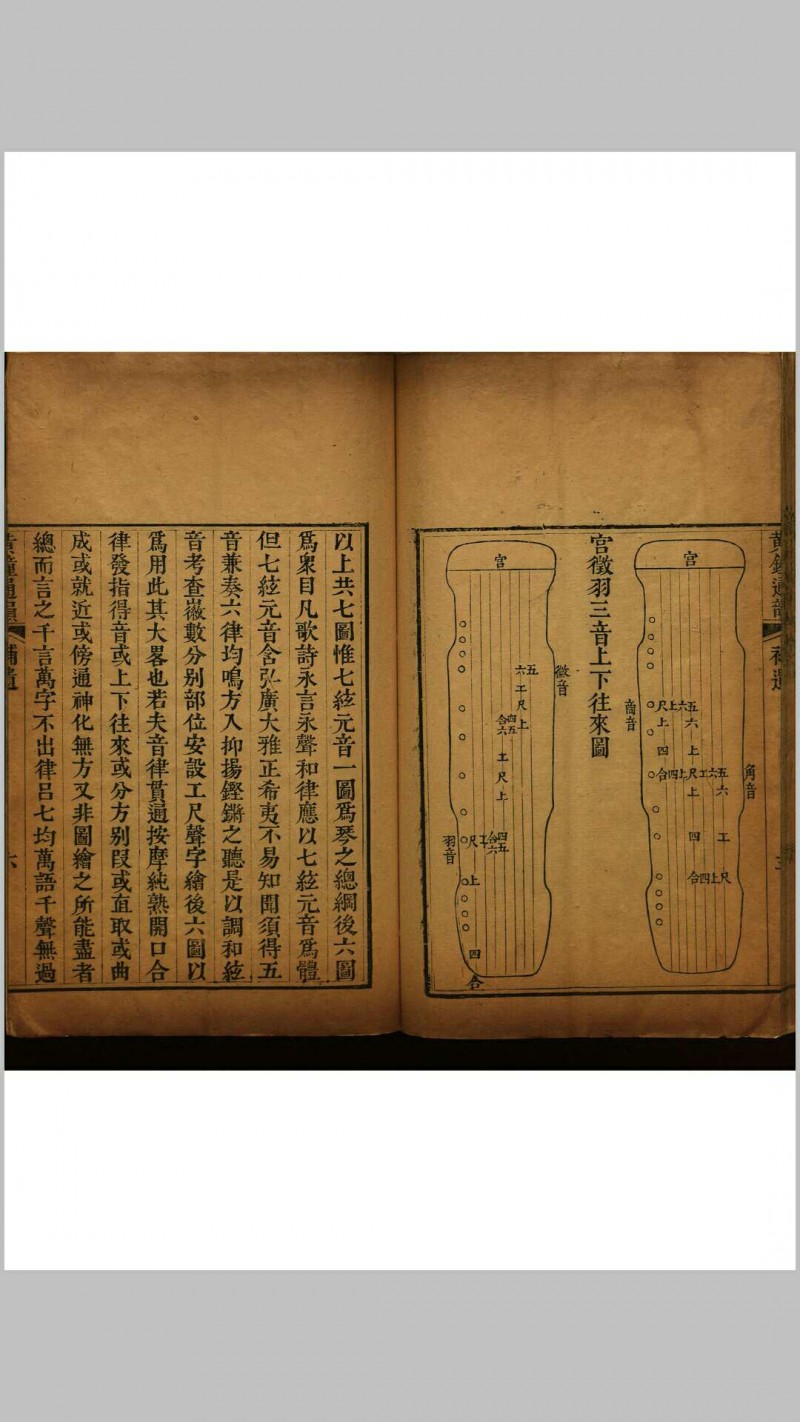 黃鐘通韻
補遺
宮
角音
商音
尺上六五
上 六
四 上
合四上尺工六五
上 六
四 工
合四上尺
宮徵羽三音上下往來圖
宮
徵音
羽音
六五
工
尺
上
四五
合六
工
尺
上
尺工合四五
六
上
四
合
以上共七圖惟七絃元音一圖爲琴之總綱後六圖
爲衆目凡歌詩永言永聲和律應以七絃元音爲體
但七絃元音含弘廣大雅正希夷不易知聞須得五
音兼奏六律均鳴方入抑揚鏗鏘之聽是以調和絃
音考查徽數分別部位安設工尺聲字繪後六圖以
爲用此其大畧也若夫音律貫通按摩純熟開口合
律發指得音或上下往來或分方別段或直取或曲
成或就近或傍通神化無方又非圖繪之所能盡者
總而言之千言萬字不出律呂七均萬語千聲無過
黃鐘通韻
補遺
六